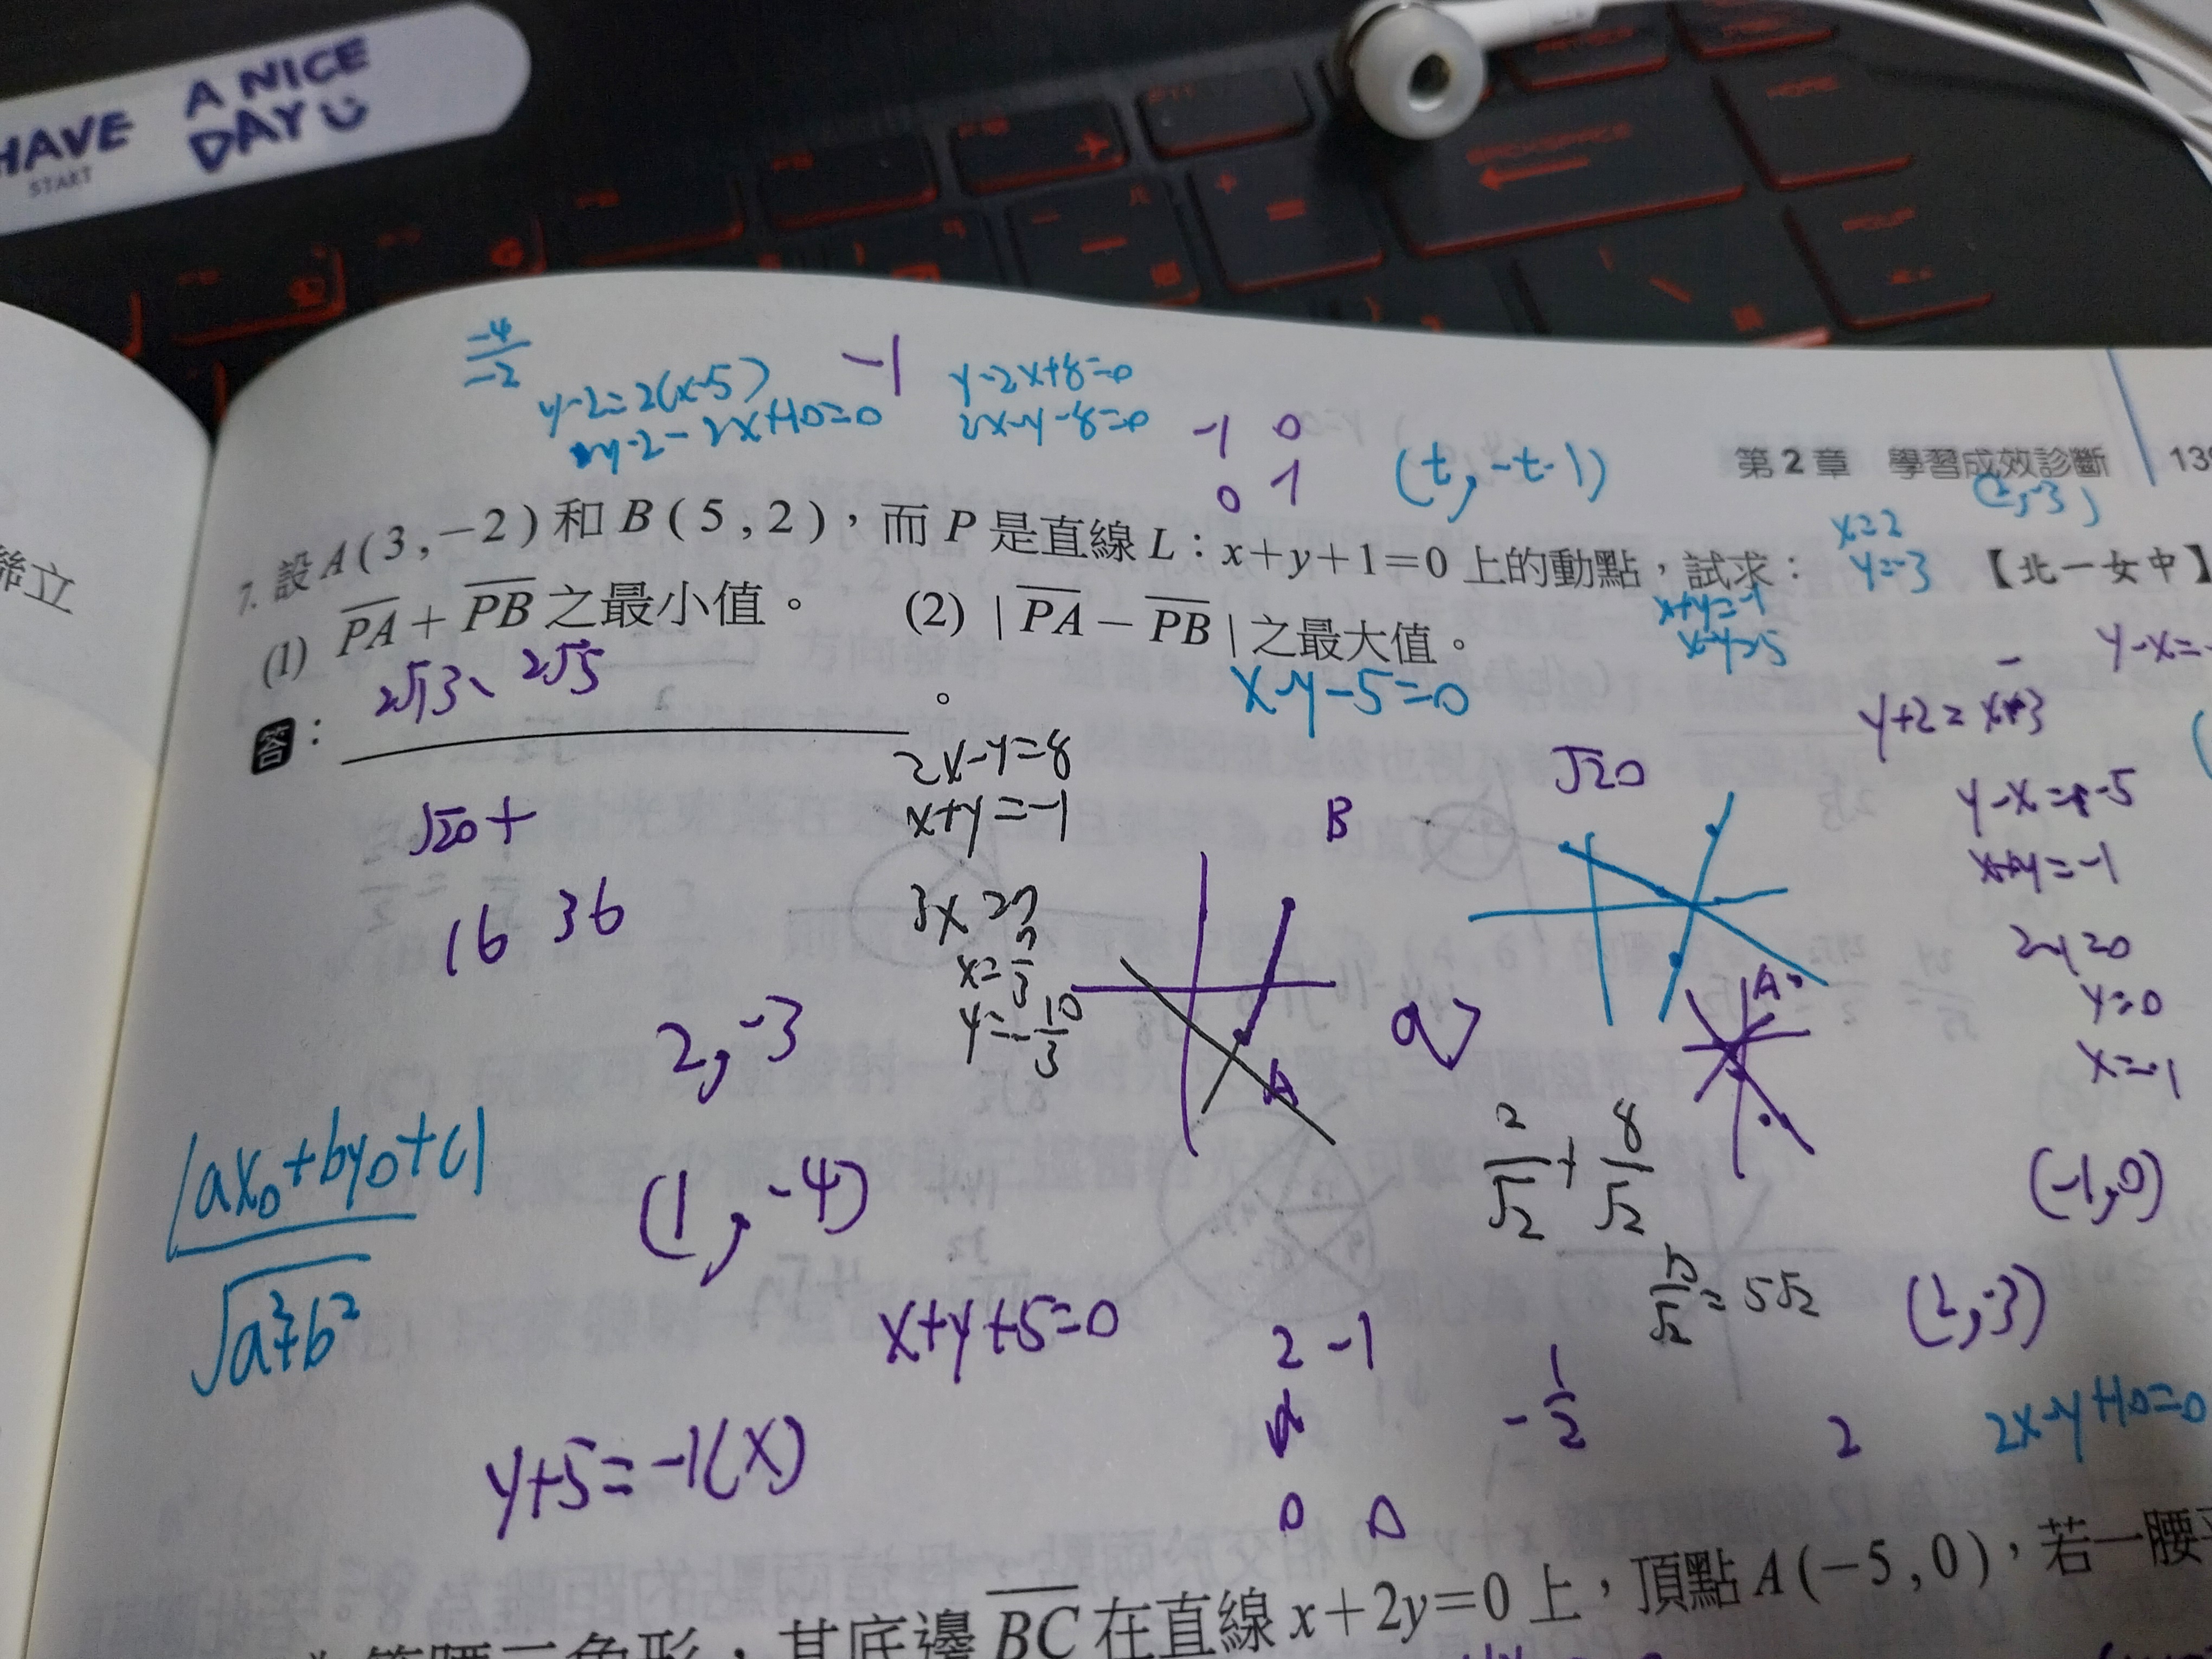 HAVE A NICE DAY
START
第 2 章 學習成效診斷
7. 設 A(3,-2)和 B(5,2),而 P 是直線 L:x+y+1=0 上的動點,試求: 【北一女中】
(1) PA+PB之最小值。 (2) |PA-PB|之最大值。
答: 2√13、2√5 。
y-2=2(x-5)
y-2-2x+10=0
y-2x+8=0
2x-y-8=0
-1
-1 0
0 -1
(t,-t-1)
x-y-5=0
x+y=-1
x-y=5
x=2
y=-3
(2,-3)
2x-y=8
x+y=-1
3x=7
x=7/3
y=-10/3
√20+
16 36
2,-3
(1,-4)
|ax₀+by₀+c|
√a²+b²
y+5=-1(x)
x+y+5=0
A
B
√20
A
2/√2+8/√2
10/√2=5√2
2 -1
0 0
-1/2
2
y+2=x-3
y-x=-5
x+y=-1
2y=0
y=0
x=-1
(-1,0)
2x-y+10=0
等腰三角形,其底邊BC在直線 x+2y=0 上,頂點 A(-5,0),若一腰